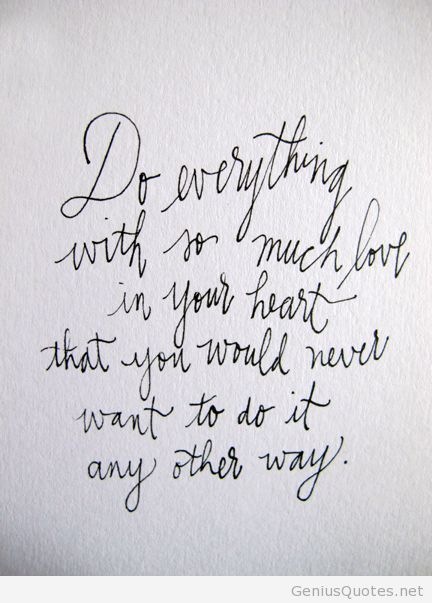 Do everything
with so much love
in your heart
that you would never
want to do it
any other way.
GeniusQuotes.net